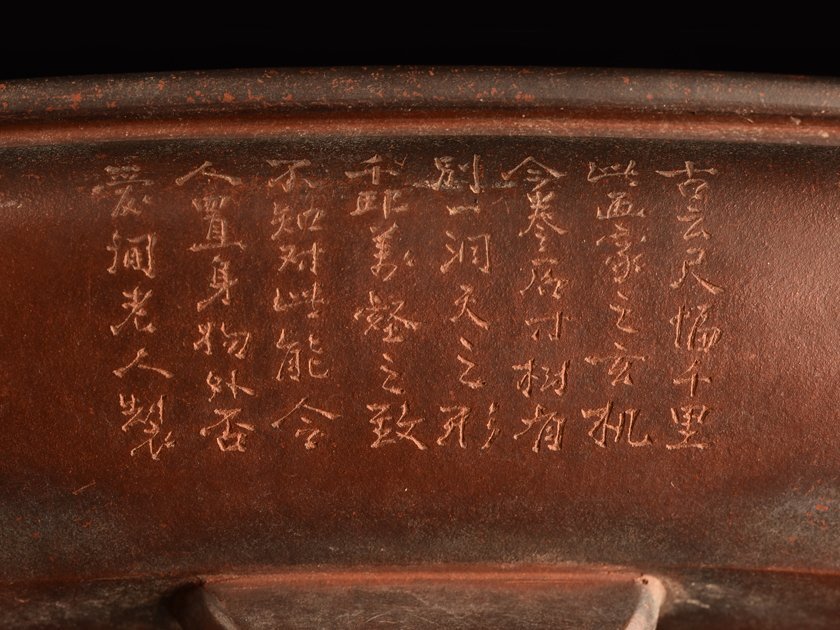 古云尺幅千里
此画家之玄机
今卷石寸树有
别一洞天之形
千邱萬壑之致
不知对此能令
人置身物外否
愛闲老人製